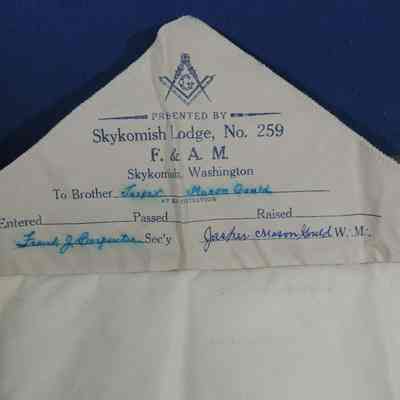 G
PRESENTED BY
Skykomish Lodge, No. 259
F. & A. M.
Skykomish, Washington
To Brother Jasper Mason Gould
Entered Passed Raised
Frank J. Carpenter Sec'y Jasper Mason Gould W. M.